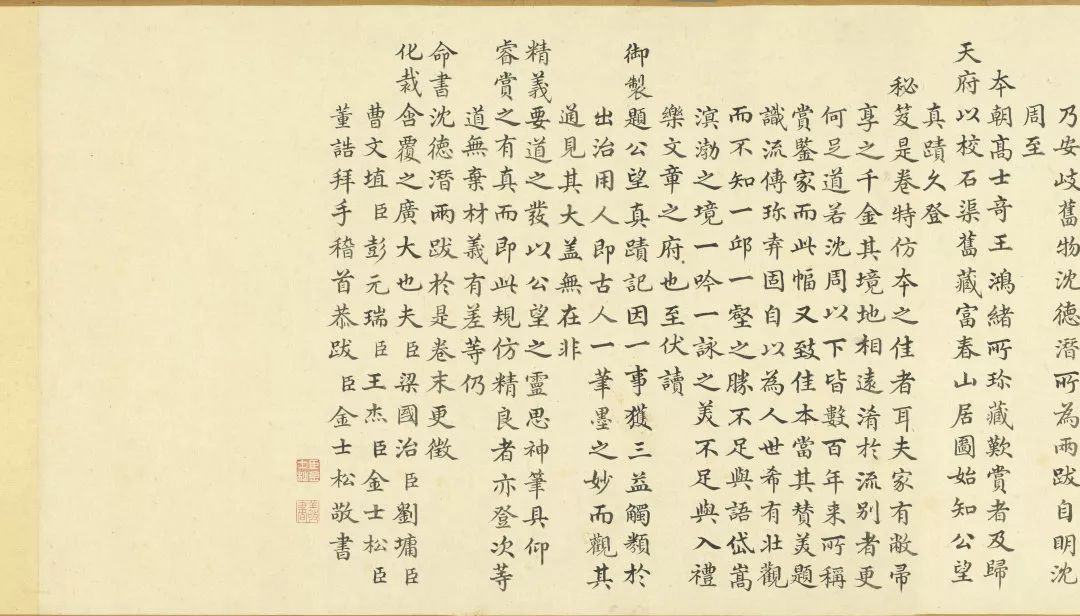 乃安歧舊物沈德潛所為兩跋自明沈
周至
本朝高士奇王鴻緒所珍藏歎賞者及歸
天府以校石渠舊藏富春山居圖始知公望
真蹟久登
秘笈是卷特仿本之佳者耳夫家有敝帚
享之千金其境地相遠淆於流別者更
何足道若沈周以下皆數百年来所稱
賞鑒家而此幅又致佳本當其賛美題
識流傳珎弆固自以為人世希有壯觀
而不知一邱一壑之勝不足與語岱嵩
溟渤之境一吟一詠之美不足與入禮
樂文章之府也至伏讀
御製題公望真蹟記因一事獲三益觸類於
出治用人即古人一筆墨之妙而觀其
通見其大盖無在非
精義要道之發以公望之靈思神筆具仰
睿賞之有真而即此規仿精良者亦登次等
道無棄材義有差等仍
命書沈德潛兩跋於是卷末更徵
化裁含覆之廣大也夫臣梁國治臣劉墉臣
曹文埴臣彭元瑞臣王杰臣金士松臣
董誥拜手稽首恭跋 臣金士松敬書